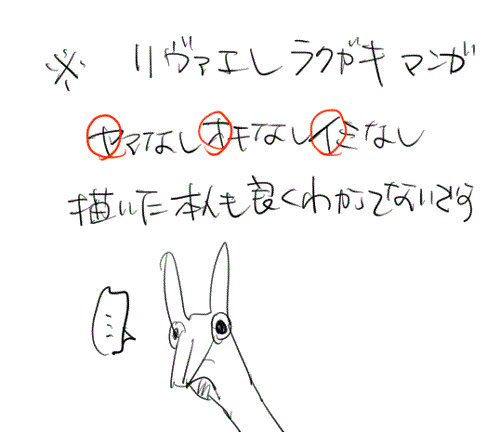 ※ リヴァエレラクガキマンガ
ヤマなしオチなしイミなし
描いた本人も良くわかってないです
…